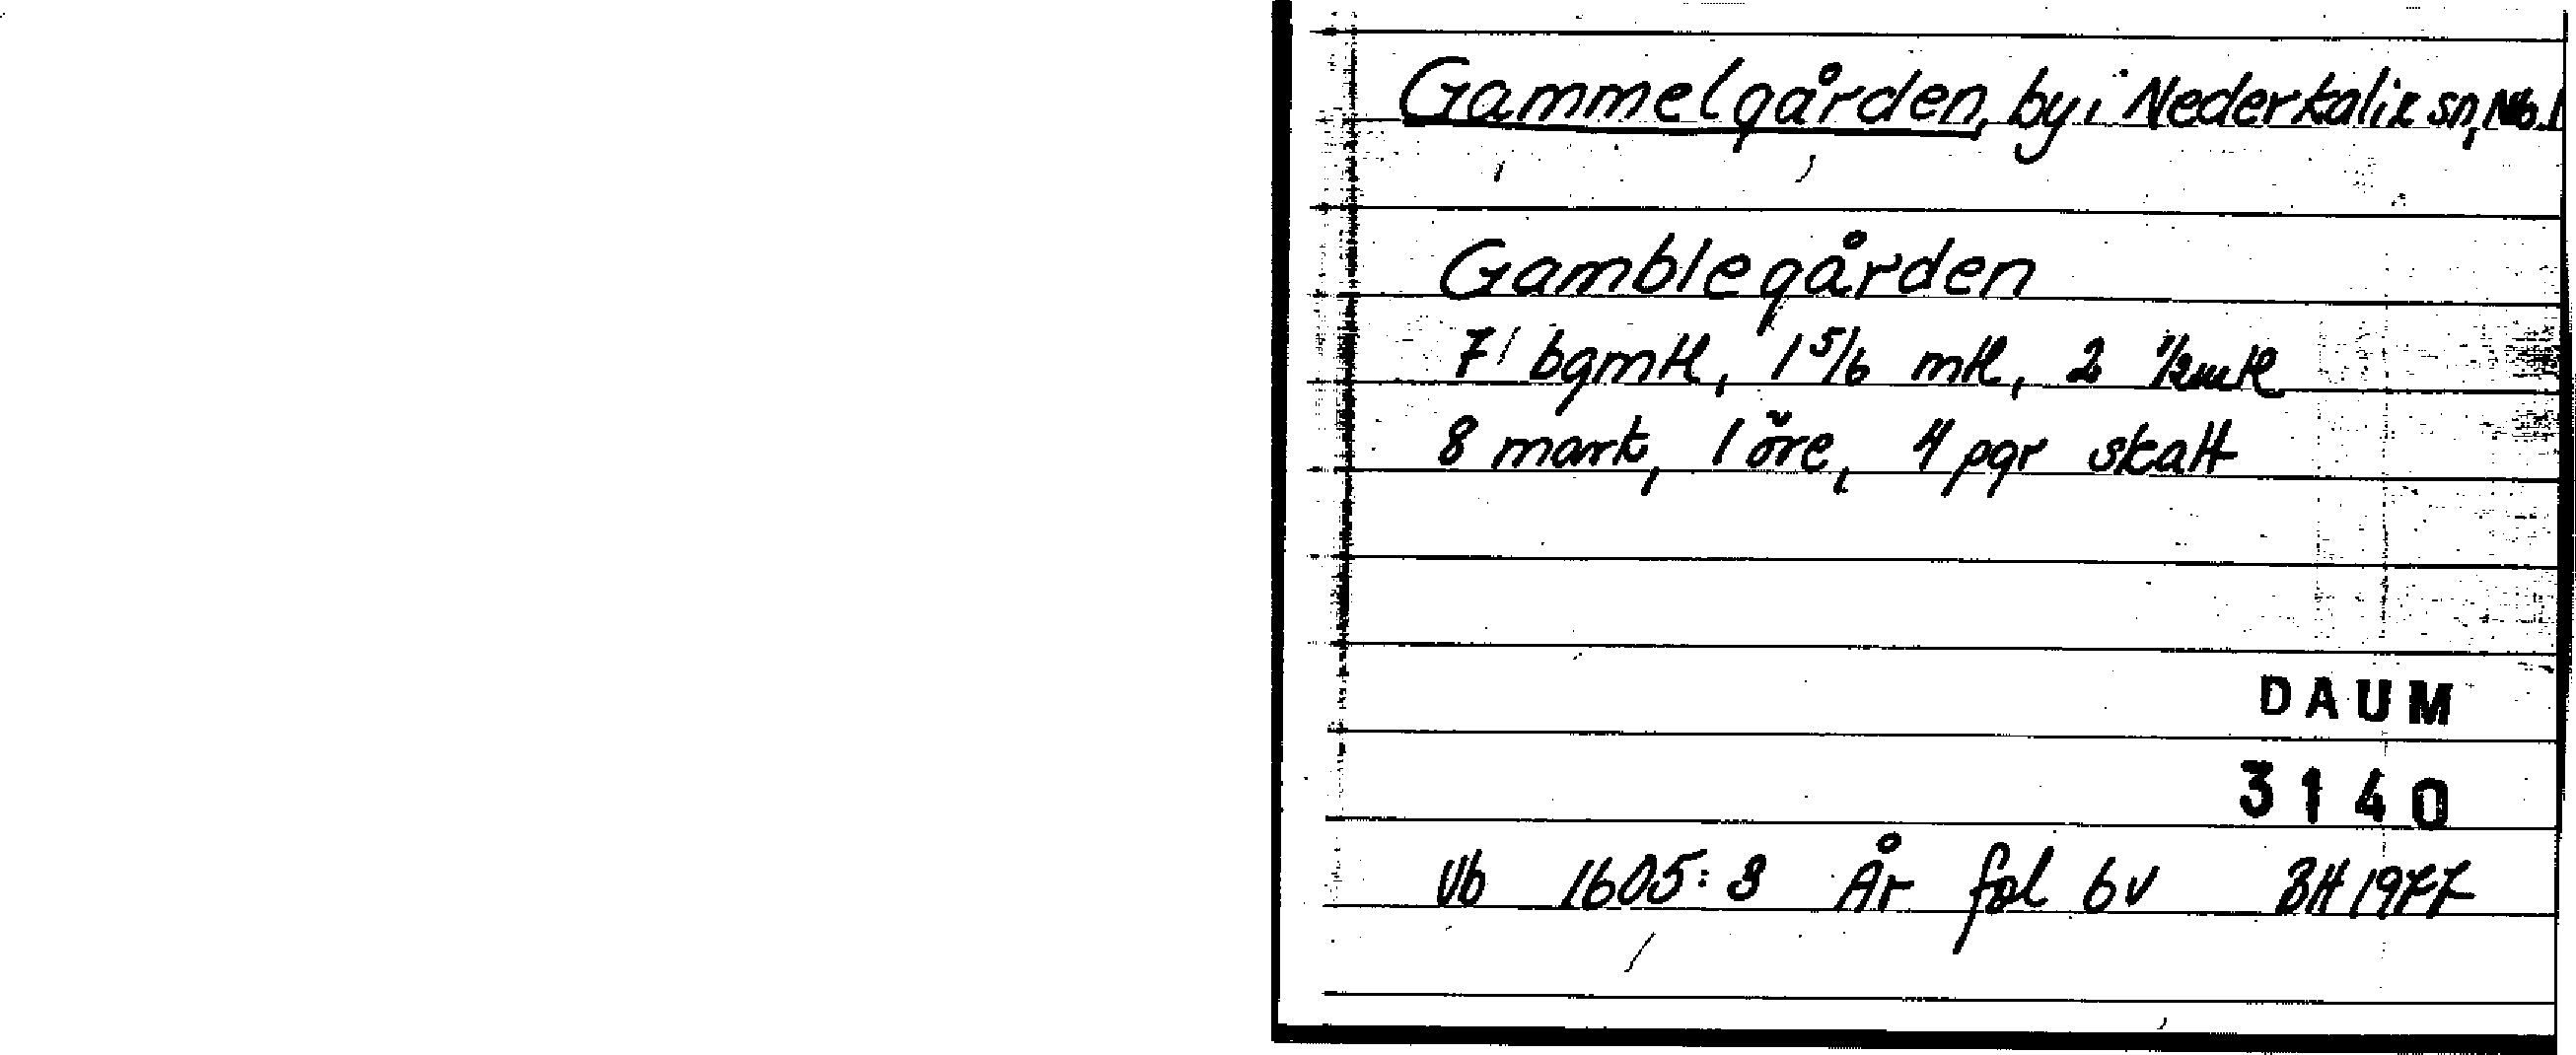 Gammelgården, by i Nederkalix sn, Nb. l
Gamblegården
7 bgmtl, 1 5/6 mtl, 2 1/2 mtl
8 mark, 1 öre, 4 pgr skatt
DAUM
3140
Vb 1605:3 År fol 6v BH 1977